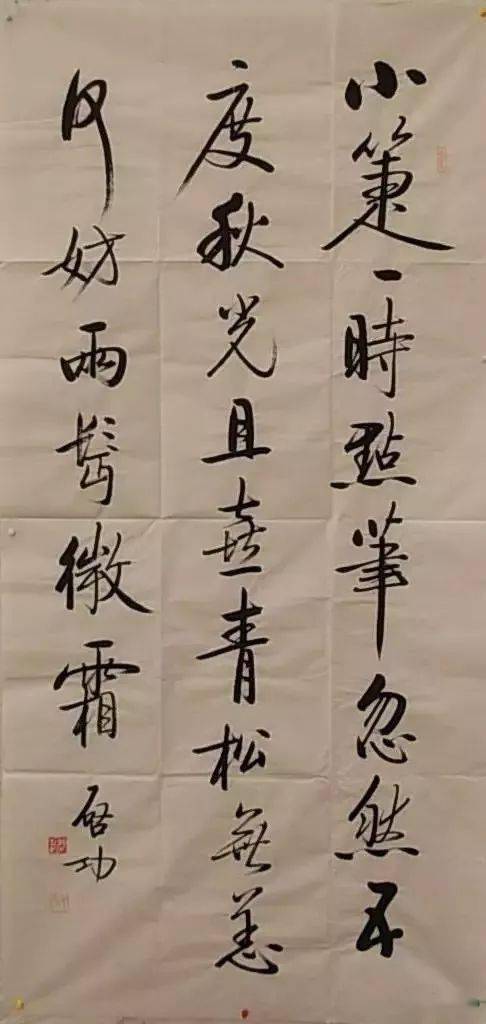 小箑一時點筆忽然五
度秋光且喜青松無恙
何妨兩鬢微霜
啓功